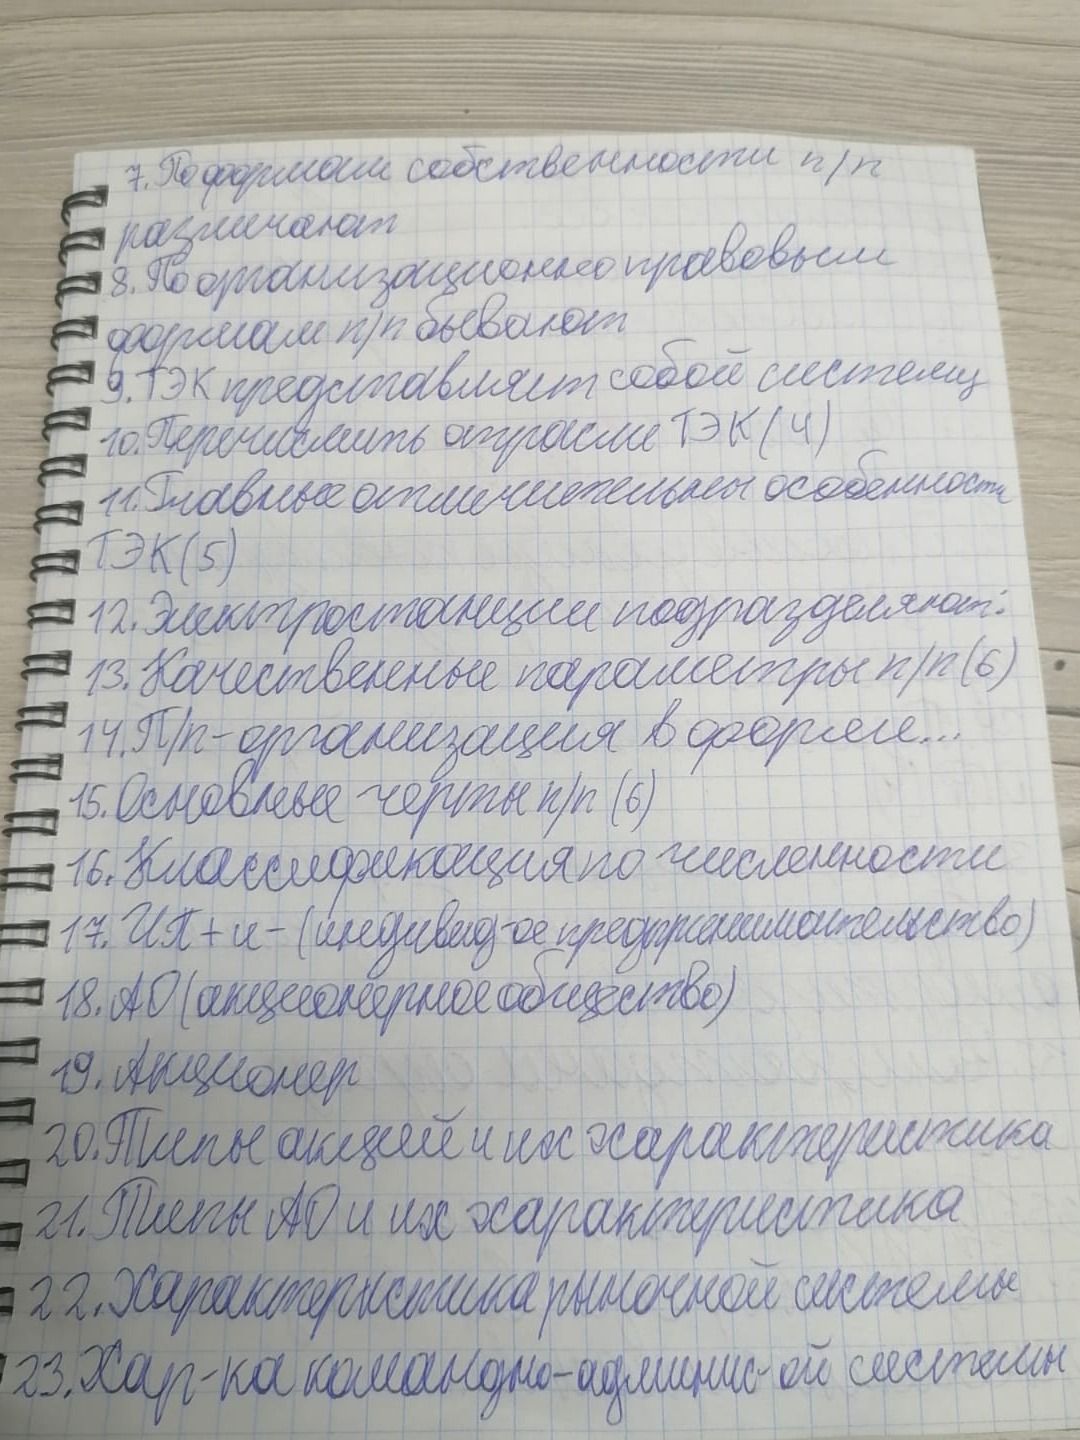 7. По формам собственности п/п
различают
8. По организационно правовым
формам п/п бывают
9. ТЭК представляет собой систему
10. Перечислить отрасли ТЭК (4)
11. Главные отличительны особенности
ТЭК (5)
12. Электростанции подразделяют:
13. Качественные параметры п/п (6)
14. П/п - организация в форме...
15. Основные черты п/п (6)
16. Классификация по численности
17. ИП + и - (индивид-ое предпринимательство)
18. АО (акционерное общество)
19. Акционер
20. Типы акций и их характеристика
21. Типы АО и их характеристика
22. Характеристика рыночной системы
23. Хар-ка командно-админис-ой системы